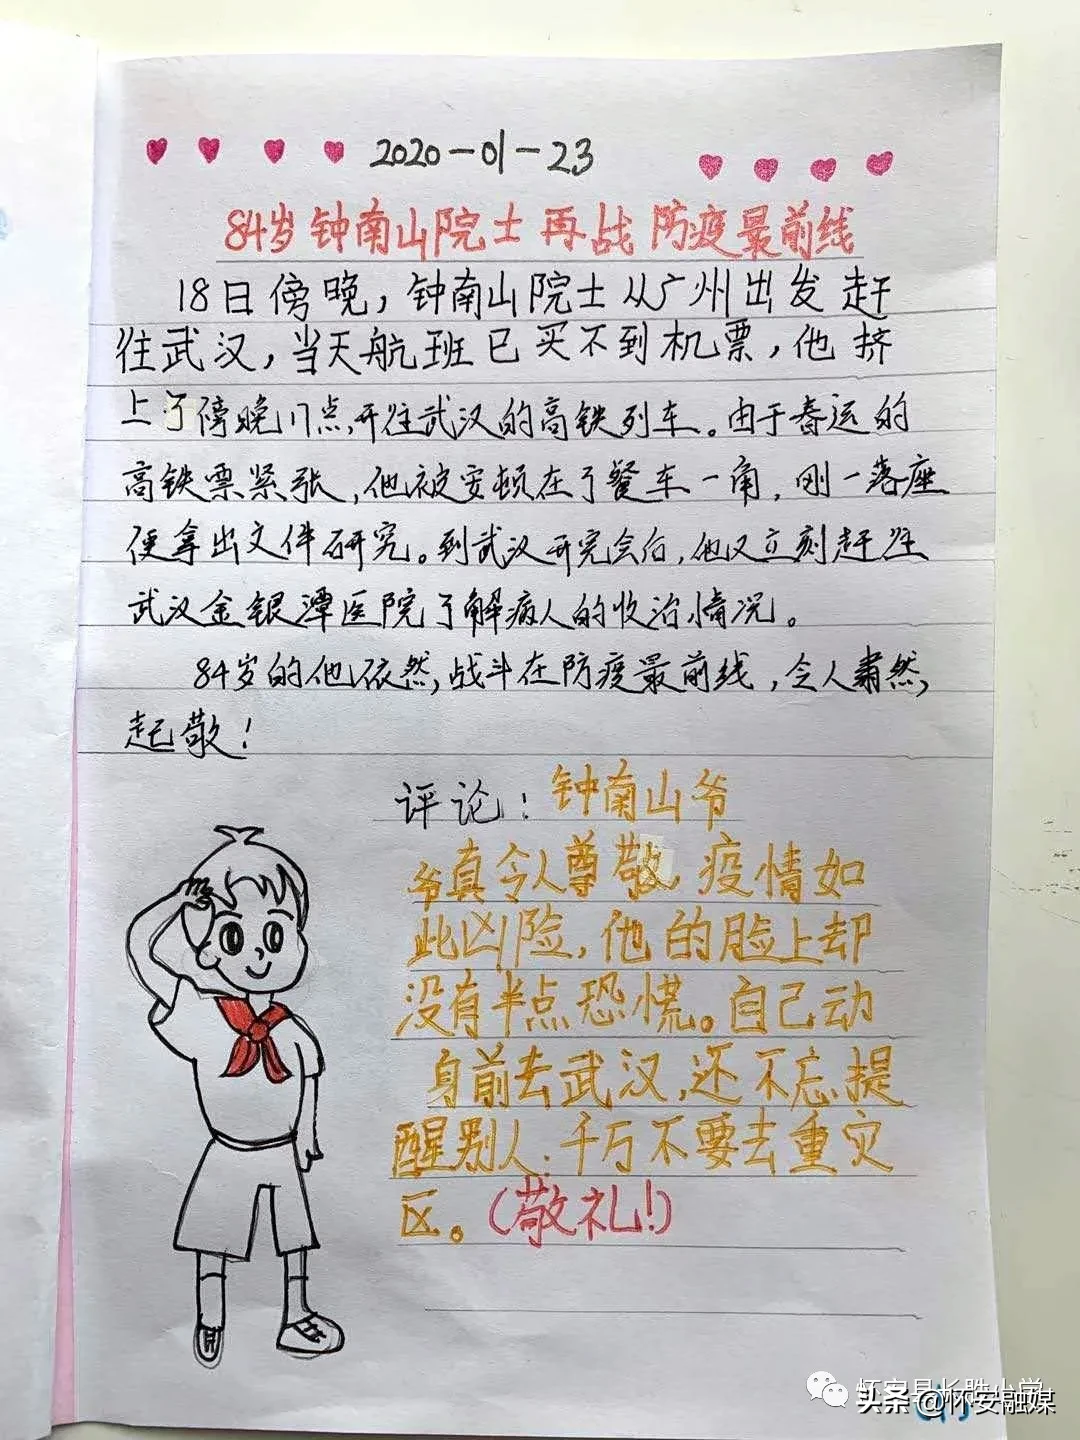 2020-01-23
84岁钟南山院士再战防疫最前线
18日傍晚,钟南山院士从广州出发赶
往武汉,当天航班已买不到机票,他挤
上了傍晚17点开往武汉的高铁列车。由于春运的
高铁票紧张,他被安顿在了餐车一角,刚一落座
便拿出文件研究。到武汉开完会后,他又立刻赶往
武汉金银潭医院了解病人的收治情况。
84岁的他依然,战斗在防疫最前线,令人肃然,
起敬!
评论:钟南山爷
爷真令人尊敬,疫情如
此凶险,他的脸上却
没有半点恐慌。自己动
身前去武汉,还不忘提
醒别人:千万不要去重灾
区。(敬礼!)
怀安县长胜小学
头条@怀安融媒